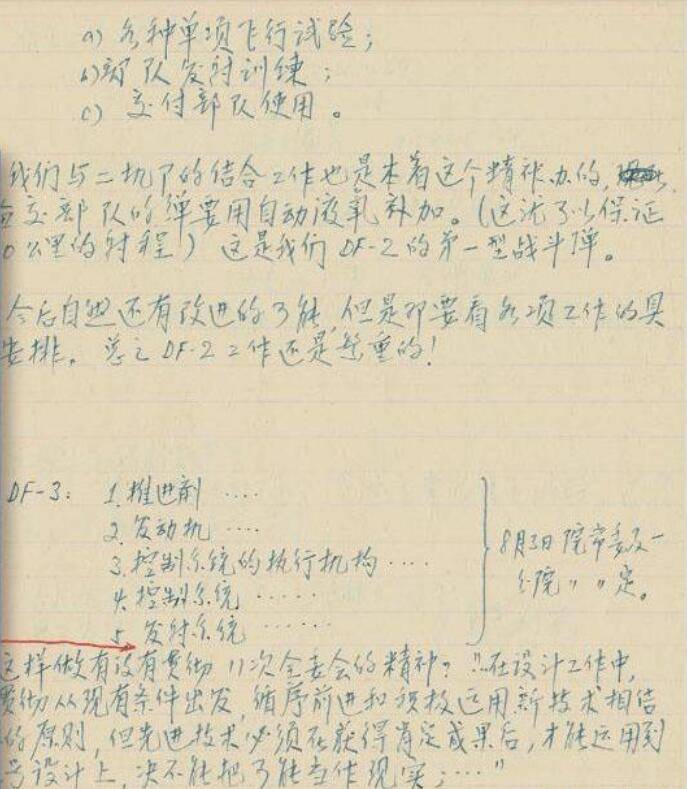 a) 各种单项飞行试验；
b) 部队发射训练；
c) 交付部队使用。
我们与二机部的结合工作也是本着这个精神办的，
交部队的弹要用自动液氧补加。(这流可以保证
0公里的射程) 这是我们DF-2的第一型战斗弹。
今后自然还有改进的可能，但是那要看各项工作的具
安排。总之DF-2工作还是繁重的！
DF-3： 1. 推进剂 ····
2. 发动机 ····
3. 控制系统的执行机构 ····
4. 控制系统 ······
5. 发射系统 ·······
8月3日院常委及一
分院〃 〃定。
这样做有没有贯彻11次全委会的精神？“在设计工作中，
贯彻从现有条件出发，循序前进和积极运用新技术相结
的原则，但先进技术必须在获得肯定成果后，才能运用到
号设计上，决不能把可能当作现实；····”